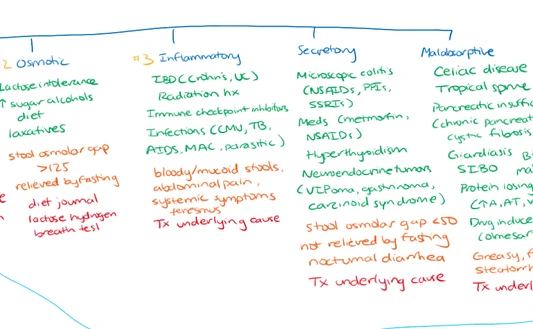 2 Osmotic
Lactose intolerance
↑ sugar alcohols
diet
laxatives
stool osmolar gap
>125
relieved by fasting
diet journal
lactose hydrogen
breath test
#3 Inflammatory
IBD (Crohn's, UC)
Radiation hx
Immune checkpoint inhibitors
Infections (CMV, TB,
AIDS, MAC, parasitic)
bloody/mucoid stools,
abdominal pain,
systemic symptoms
tenesmus
Tx underlying cause
Secretory
Microscopic colitis
(NSAIDs, PPIs,
SSRIs)
Meds (metformin,
NSAIDs)
Hyperthyroidism
Neuroendocrine tumors
(VIPoma, gastrinoma,
carcinoid syndrome)
stool osmolar gap <50
not relieved by fasting
nocturnal diarrhea
Tx underlying cause
Malabsorptive
Celiac disease
Tropical sprue
Pancreatic insuffic
(chronic pancreat
cystic fibrosis
Giardiasis
SIBO
Protein losing
(↑A1AT,
Drug induce
(olmesar
Greasy, f
steatorrh
Tx underl